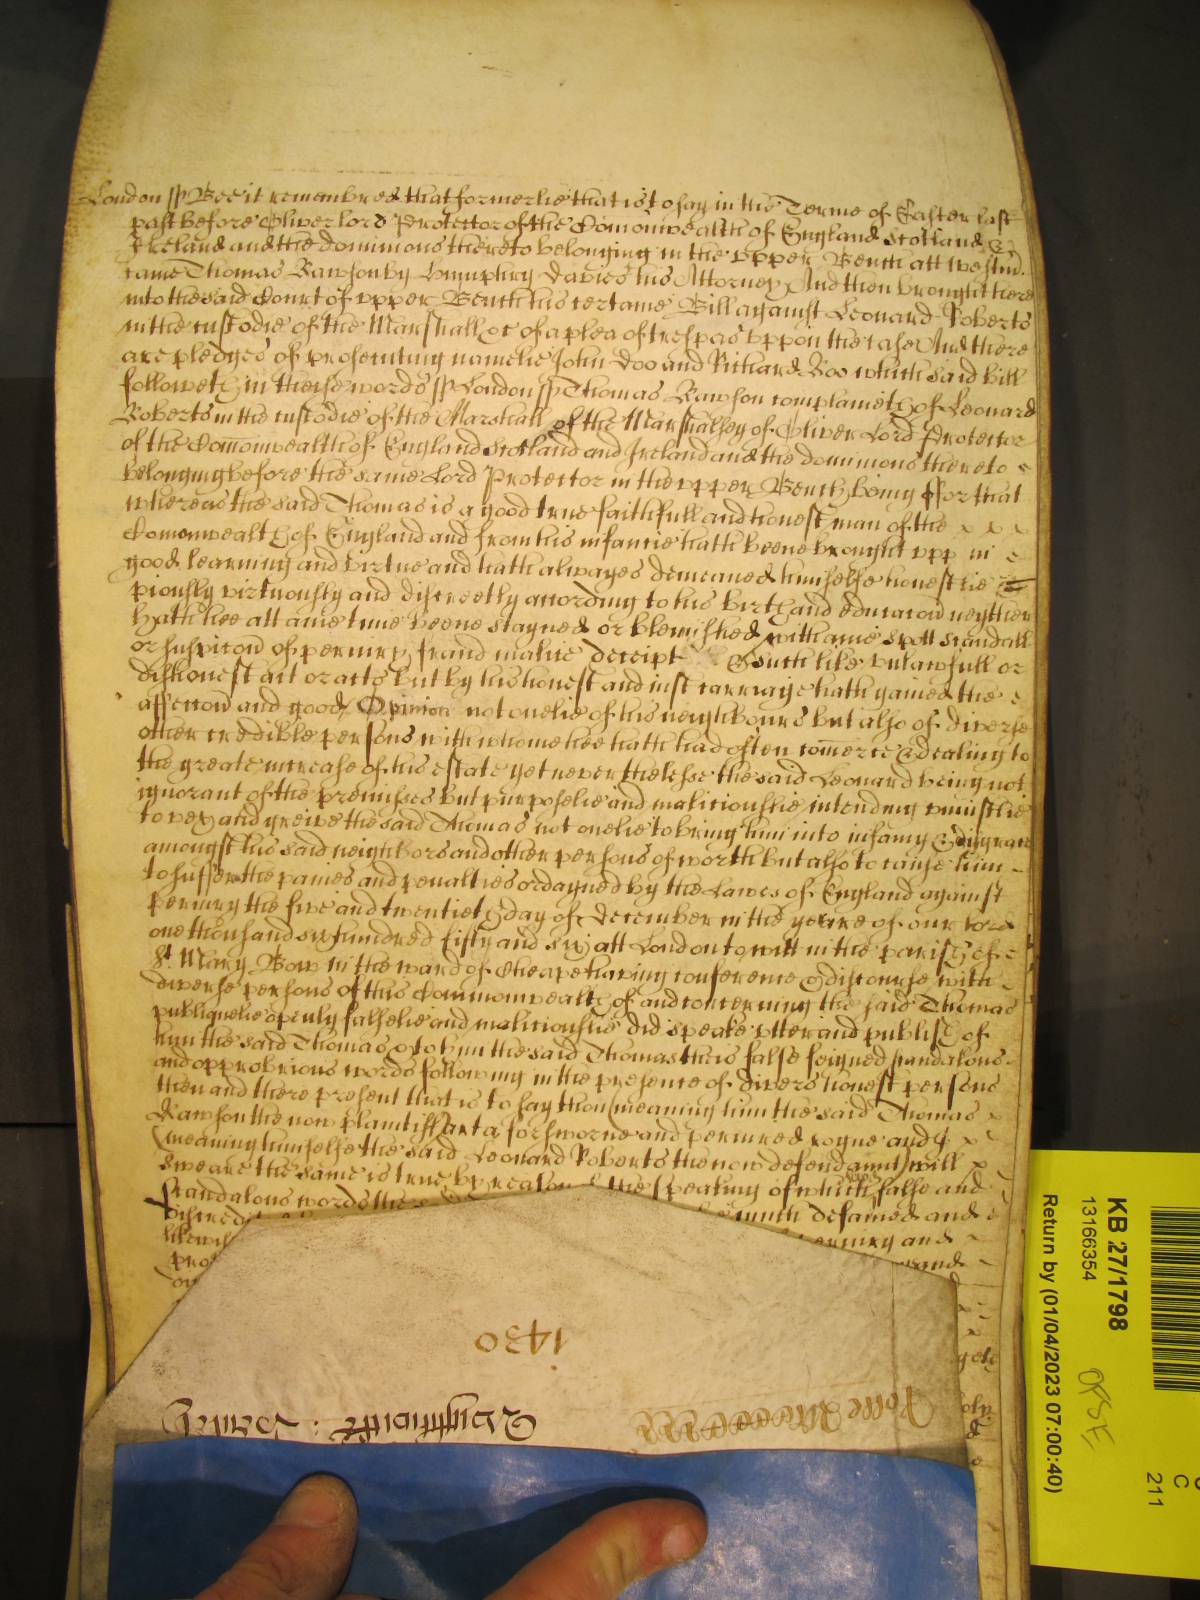 London ss Bee it remembred that formerlie that is to say in the Terme of Easter last
past before Oliver Lord Protector of the Comonwealth of England Scotland &
Ireland and the dominions thereto belonging in the upper Bench att Westm̄.
came Thomas Rawson by Humphry Davies his Attorney And then brought here
into the said Court of upper Bench his certaine Bill against Leonard Roberts
in the custodie of the Marshall &c of a plea of trespas uppon the case And there
are pledges of prosecuting namelie John Doo and Richard Roo which said bill
followeth in theise words ss London ss Thomas Rawson complaineth of Leonard
Roberts in the custodie of the Marshall of the Marshalsey of Oliver Lord Protector
of the Comonwealth of England Scotland and Ireland and the dominions thereto
belonging before the same Lord Protector in the upper Bench being ffor that
whereas the said Thomas is a good true faithfull and honest man of the
Comonwealth of England and from his infancie hath beene brought upp in
good learning and virtue and hath alwayes demeaned himselfe honestlie
piously virtuously and discreetly according to his birth and educacon neyther
hath hee att anie time beene stayned or blemished with anie spott scandall
or suspicon of periury fraud malice deceipt & such like unlawfull or
dishonest act or acts but by his honest and iust carriage hath gained the
affeccon and good Opinion not onelie of his neighbours but also of diverse
other credible persons with whome hee hath had often comerce & dealing to
the greate increase of his estate yet neverthelesse the said Leonard being not
ignorant of the premisses but purposelie and maliciouslie intending uniustlie
to vex and greive the said Thomas not onelie to bring him into infamy & disgrace
amongst his said neighbors and other persons of worth but also to cause him
to suffer the paines and penalties ordayned by the Lawes of England against
periury the five and twentieth day of December in the yeare of our Lord
one thousand six hundred fifty and six att London to witt in the parish of
St. Mary Bow in the ward of Cheape having conference & discourse with
diverse persons of this Commonwealth of and concerning the said Thomas
publiquelie openly falselie and maliciouslie did speake utter and publish of
him the said Thomas & to him the said Thomas theis false feigned scandalous
and opprobrious words following in the presence of divers honest persons
then and there present that is to say thou (meaning him the said Thomas
Rawson the now plantiff) art a forsworne and periured rogue and I
(meaning himselfe the said Leonard Roberts the now defendannt) will
sweare the same is true by reason of the speaking of which false and
scandalous words the
much defamed and
likewis periury and
1430
KB 27/1798
13166354
Return by (01/04/2023 07:00:40)
C
211